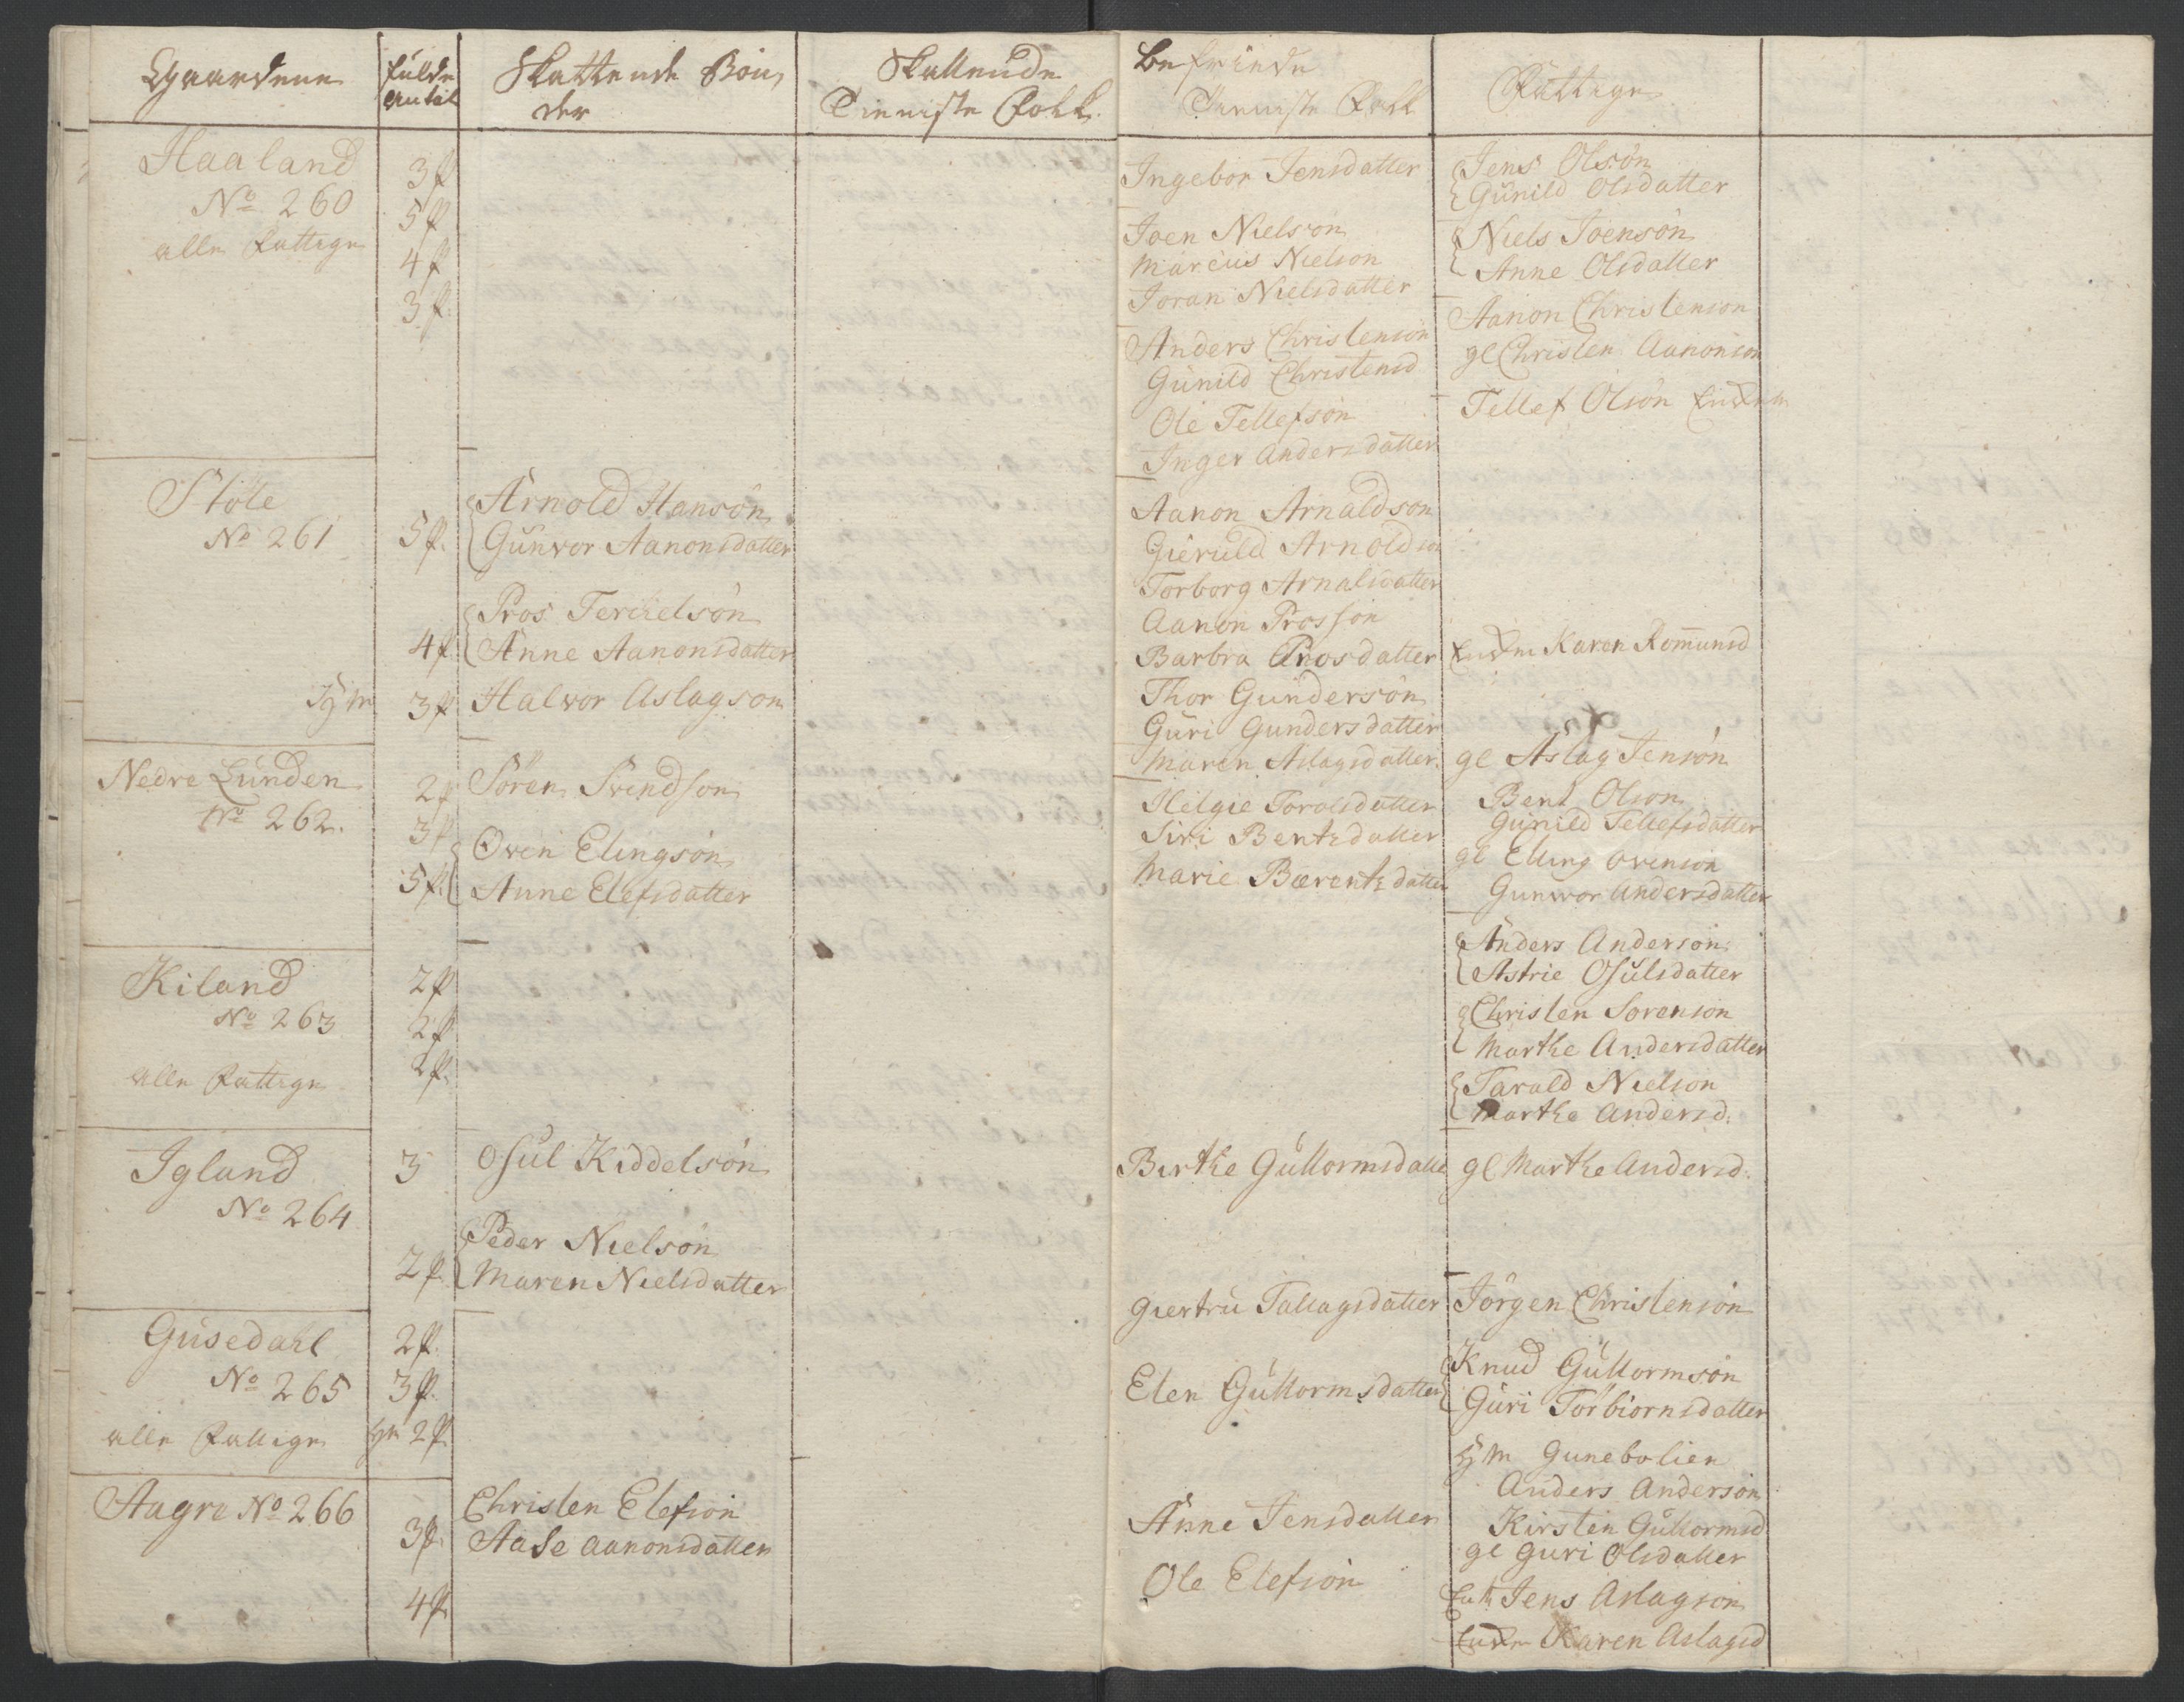 Gaardene
fulde
Antal
Skattende Bøn,
der
Skattende
Tieniste Folk
Befriede
Tieniste Folk
Fattige
Haaland
No 260
alle Fattige
3 f
5 f
4 f
3 f
Ingebor Jensdatter
Joen Nielsøn
Marcus Nielson
Joran Nielsdatter
Anders Christensøn
Gunild Christensd
Ole Tellefsøn
Inger Andersdatter
Jens Olsøn
Gunild Olsdatter
Niels Joensøn
Anne Olsdatter
Aanon Christenson
gl Christen Aanonson
Tellef Olsøn
Støle
No 261
5 f.
Arnold Hansøn
Gunvor Aanonsdatter
4 f.
Pros Terkielsøn
Anne Aanonsdatter
3 f
Halvor Aslagson
Aanon Arnaldson
Gieruld Arnoldson
Torborg Arnalsdatter
Aanon Prosson
Barbra Prosdatter
Thor Gundersøn
Guri Gundersdatter
Maren Aslagsdatter
Karen Romunsd
gl Aslag Jensøn
Nedre Lunden
No 262.
2 f
3 f
5 f.
Søren Svendson
Oven Elingsøn
Anne Elefsdatter
Helgie Torolsdatter
Siri Bentsdatter
Marie Bærentsdatter
Bent Olson
Gunild Tellefsdatter
gl Elling Ovenson
Gunvor Andersdatter
Kiland
No 263
alle Fattige
2 f
2 f
2 f.
Anders Andersøn
Astrie Osulsdatter
Christen Sorenson
Marthe Andersdatter
Tarald Nielson
Marthe Andersd.
Igland
No 264
3
Osul Kiddelsøn
2 f.
Peder Nielsøn
Maren Nielsdatter
Birthe Guttormsdatte
gl Marthe Andersd.
Gusedahl
No 265
alle Fattige
2 f.
3 f.
2 f.
Giertru Tallagsdatter
Elen Guttormsdatter
Jørgen Christensøn
Knud Guttormsøn
Guri Torbiornsdatter
Gunebolien
Anders Andersøn
Kirsten Guttormsd
gl Guri Olsdatter
Aagre No 266
3 f.
4 f.
Christen Elefsøn
Aase Aanonsdatter
Anne Jensdatter
Ole Elefsøn
Jens Aslagsøn
Karen Aslagsd